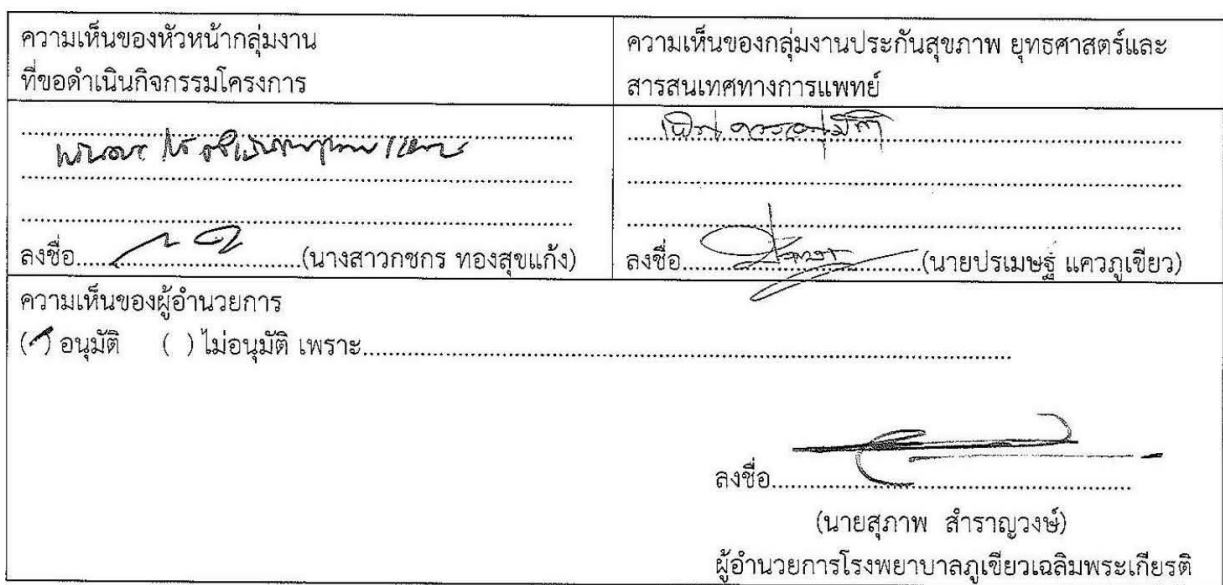 ความเห็นของหัวหน้ากลุ่มงาน
ที่ขอดำเนินกิจกรรมโครงการ
ลงชื่อ..............................(นางสาวกชกร ทองสุขแก้ง)
ความเห็นของกลุ่มงานประกันสุขภาพ ยุทธศาสตร์และ
สารสนเทศทางการแพทย์
เห็นควรอนุมัติ
ลงชื่อ..............................(นายปรเมษฐ์ แควภูเขียว)
ความเห็นของผู้อำนวยการ
(✓) อนุมัติ ( ) ไม่อนุมัติ เพราะ..............................
ลงชื่อ..............................
(นายสุภาพ สำราญวงษ์)
ผู้อำนวยการโรงพยาบาลภูเขียวเฉลิมพระเกียรติ